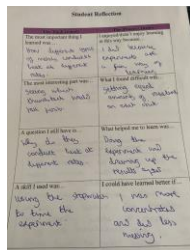 Student Reflection
The most important thing I learned was...
How different types
of metals conduct
heat at different
rates.
I enjoyed/didn't enjoy learning in this way because...
I did because
experiments are
a fun way of
learning
The most interesting part was...
seeing which
the most
What I found difficult was...
getting equal
amounts of
on each
A question I still have is...
Why do they
conduct heat at
different rates
What helped me to learn was...
Doing the
experiment and
drawing up the
results table
A skill I used was...
using the stopwatch
to time the
experiment
I could have learned better if...
I was more
concentrated
and did less